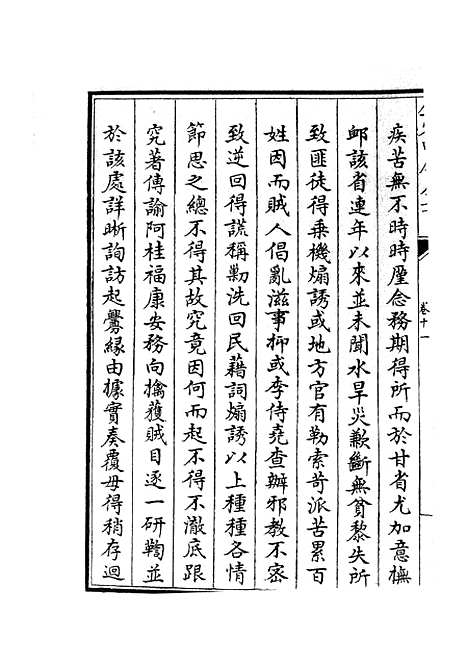 疾苦無不時時廑念務期得所而於甘省尤加意撫
卹該省連年以來並未聞水旱災歉斷無貧黎失所
致匪徒得乗機煽誘或地方官有勒索苛派苦累百
姓因而賊人倡亂滋事抑或李侍堯查辦邪教不宻
致逆回得謊稱勦洗回民藉詞煽誘以上種種各情
節思之總不得其故究竟因何而起不得不澈底跟
究著傳諭阿桂福康安務向擒獲賊目逐一研鞫並
於該處詳晰詢訪起釁緣由據實奏覆毋得稍存迴
卷十一